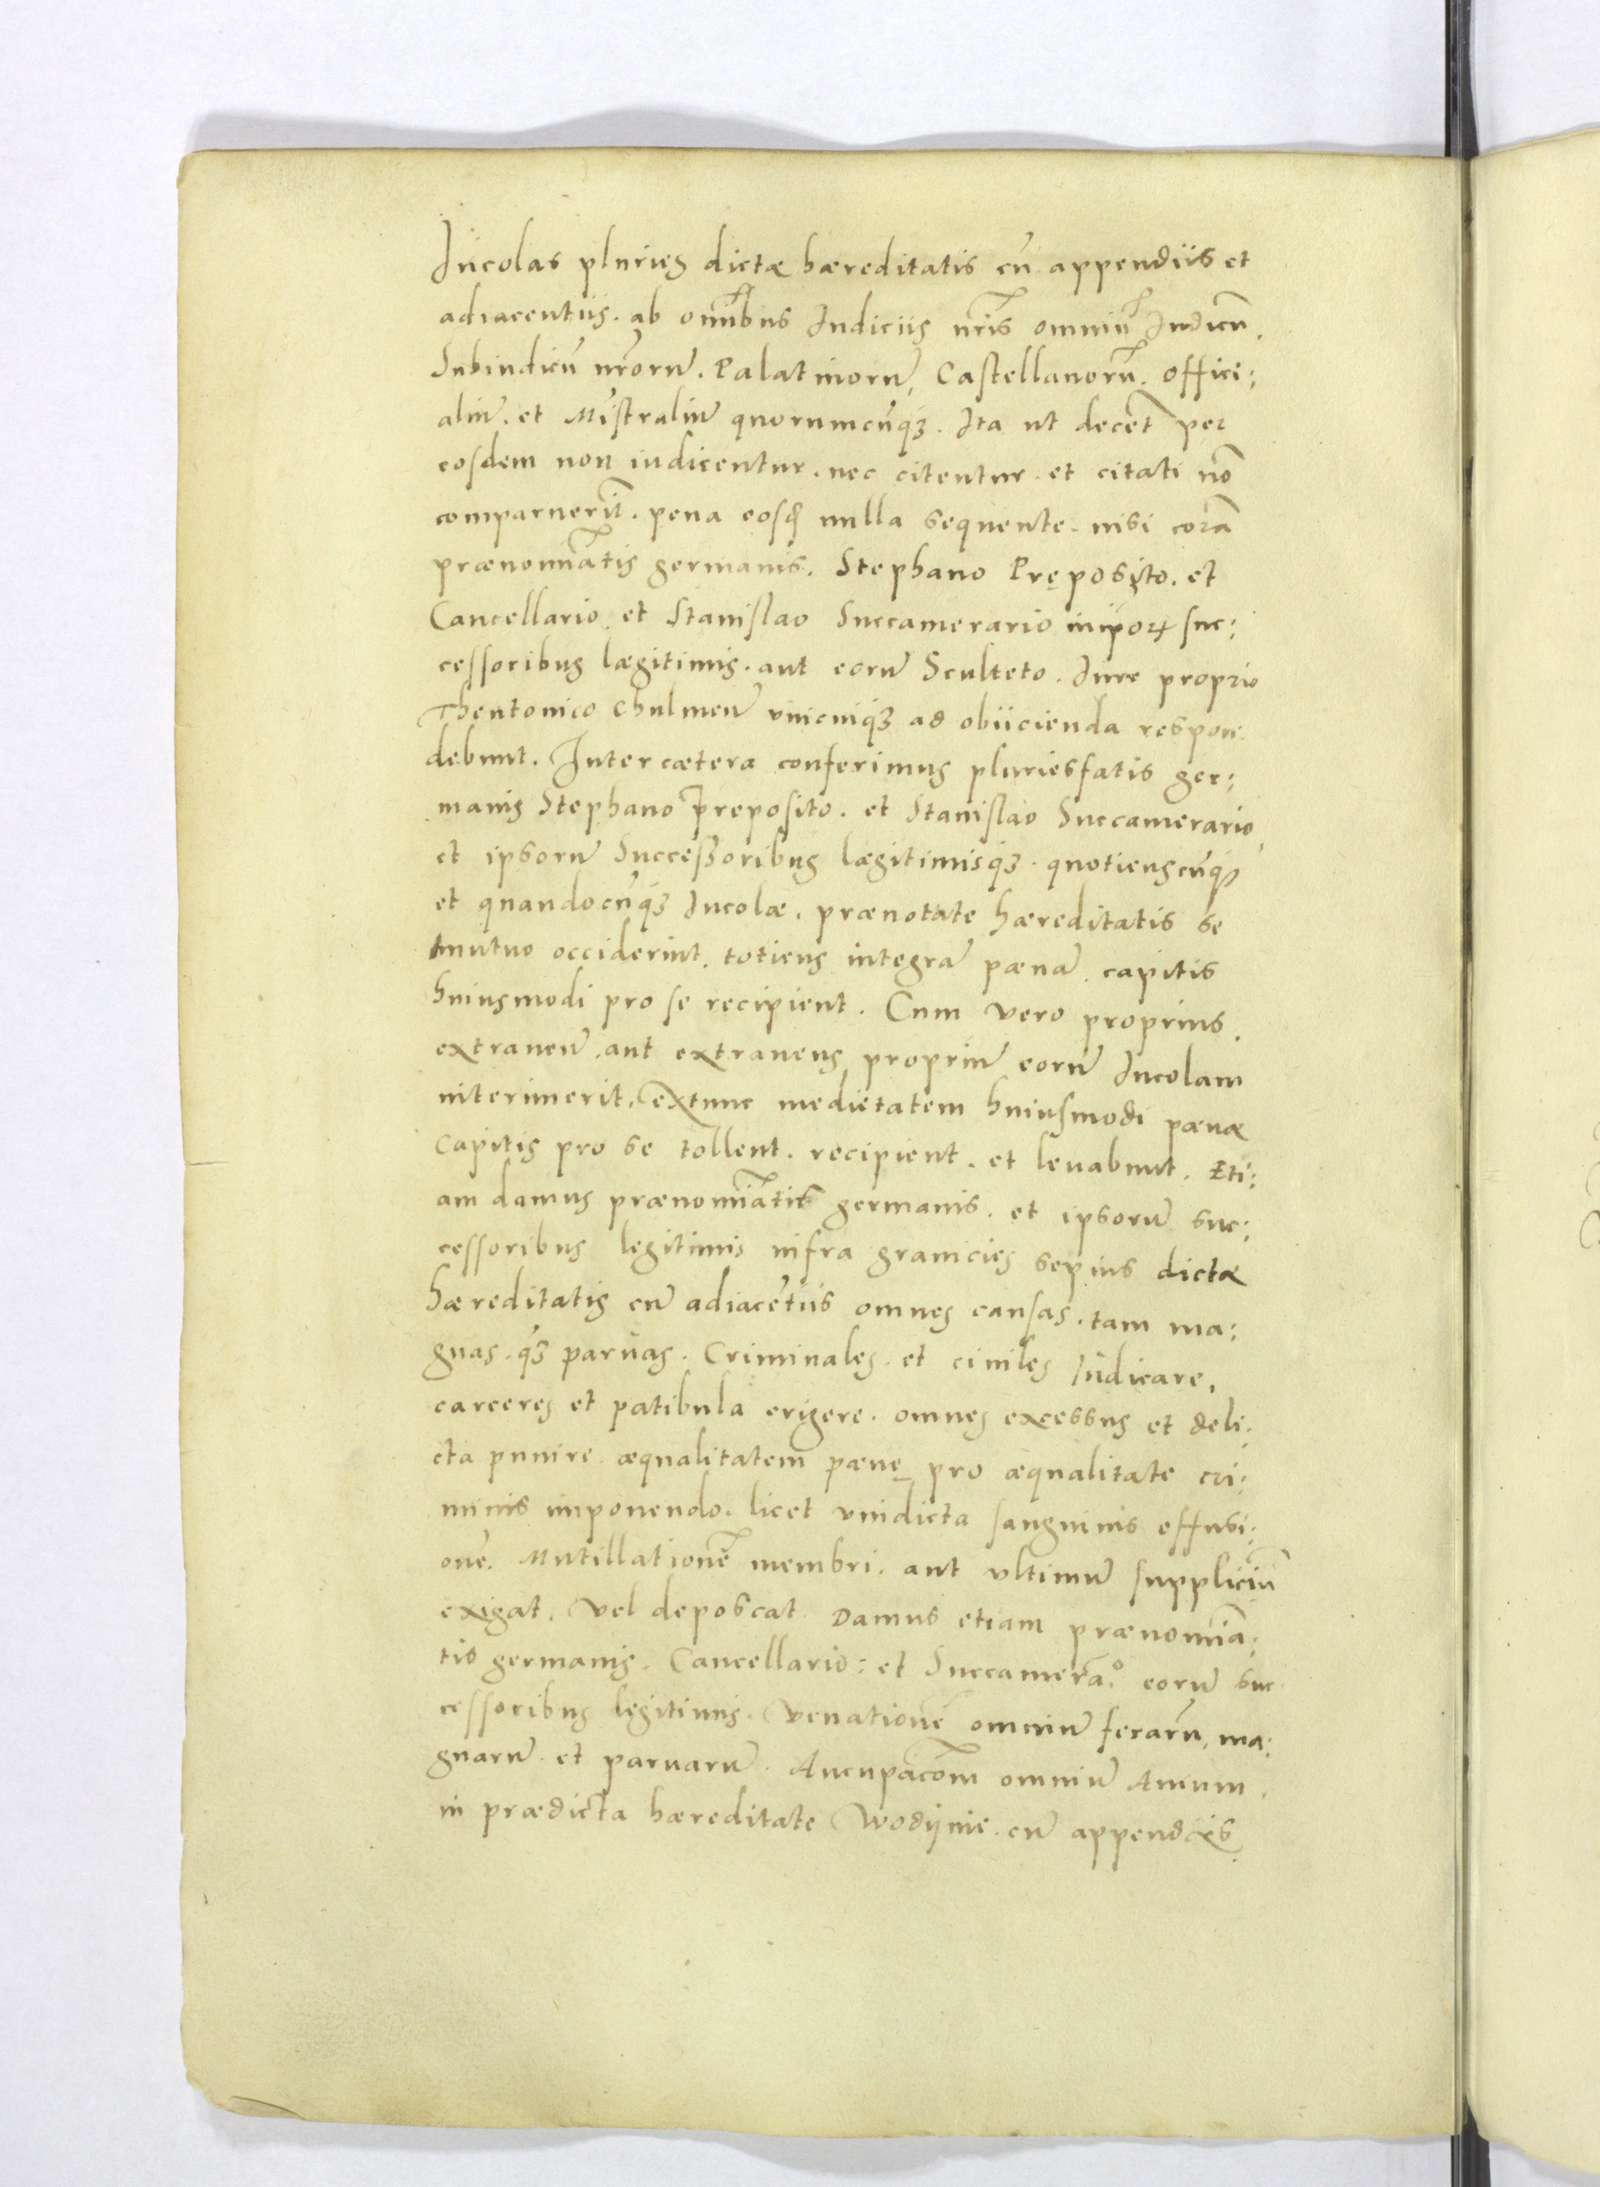 Incolas pluries dictæ hæreditatis cū appendiis et
adiacentiis. ab omībus Iudiciis nr̄is omniū Iudicū.
Subiudicū nr̄orū. Palatinorū, Castellanorū. offici:
aliū. et Mistraliū quorumcūq3. Ita ut decet̄ per
eosdem non iudicentur. nec citentur. et citati nō
comparuerīt. pena eosq̄ nulla sequente. nisi corā
prænomīatis germanis. Stephano Pręposito. et
Cancellario. et Stanislao Succamerario iniporꝝ suc:
cessoribus lægitimis. aut eorū Sculteto. Iure proprio
Theutonico Chulmeñ unicuiq3 ad obiicienda respon:
debunt. Inter cætera conferimus pluriesfatis ger:
manis Stephano preposito. et Stanislao Succamerario,
et ipsorū Successoribus lægitimisq3. quotienscūq3
et quandocūq3 Incolæ. prænotate hæreditatis se
mutuo occiderint. totiens integrā pænā capitis
huiusmodi pro se recipient. Cum vero proprius.
extraneū. aut extraneus propriū eorū Incolam
interimerit. extunc medietatem huiusmodi pænæ
capitis pro se tollent. recipient. et levabunt. Eti:
am damus prænomīatis germanis. et ipsorū suc:
cessoribus legitimis infra granicies sepius dictæ
hæreditatis cū adiacētiis omnes causas. tam ma:
gnas. q̄3 parvas. Criminales. et civiles Iudicare,
carceres et patibula erigere. omnes excessus et deli:
cta punire. æqualitatem pænę pro æqualitate cri:
minis imponendo. licet vindicta sanguinis effusi:
onē. Mutillationē membri. aut ultimū suppliciū
exigat. vel deposcat. Damus etiam prænomīa:
tis germanis. Cancellario: et Succamerā°. eorū suc
cessoribus legitimis. Venationē omniū ferarū, ma:
gnarū et parvarū. Aucupac̄om omniū Avium.
in prædicta hæreditate Wodÿnie. cū appendiis